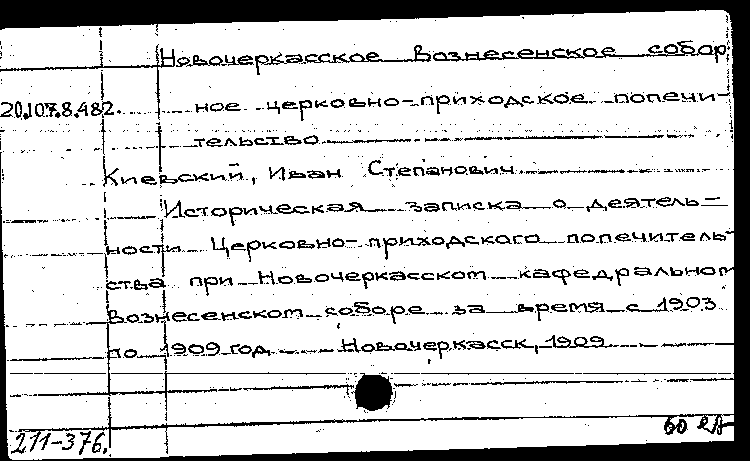 Новочеркасское Вознесенское собор
20.107.8.482. ное церковно-приходское попечи-
тельство
Киевский, Иван Степанович
Историческая записка о деятель-
ности Церковно-приходского попечитель-
ства при Новочеркасском кафедральном
Вознесенском соборе за время с 1903
по 1909 год Новочеркасск, 1909
211-376.